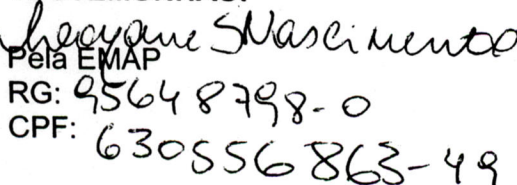 SNascimento
Pela EMAP
RG: 95648798-0
CPF: 630556863-49